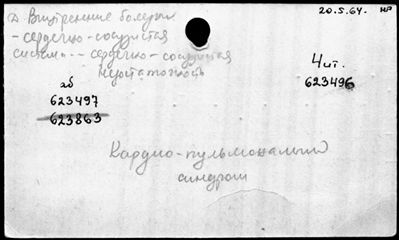 20.5.64. нр
Внутренние болезни
- сердечно-сосудистая
система -- сердечно-сосудистая
недостаточность
Чит.
623496
аб
623497
623863
Кардио-пульмональный
синдром